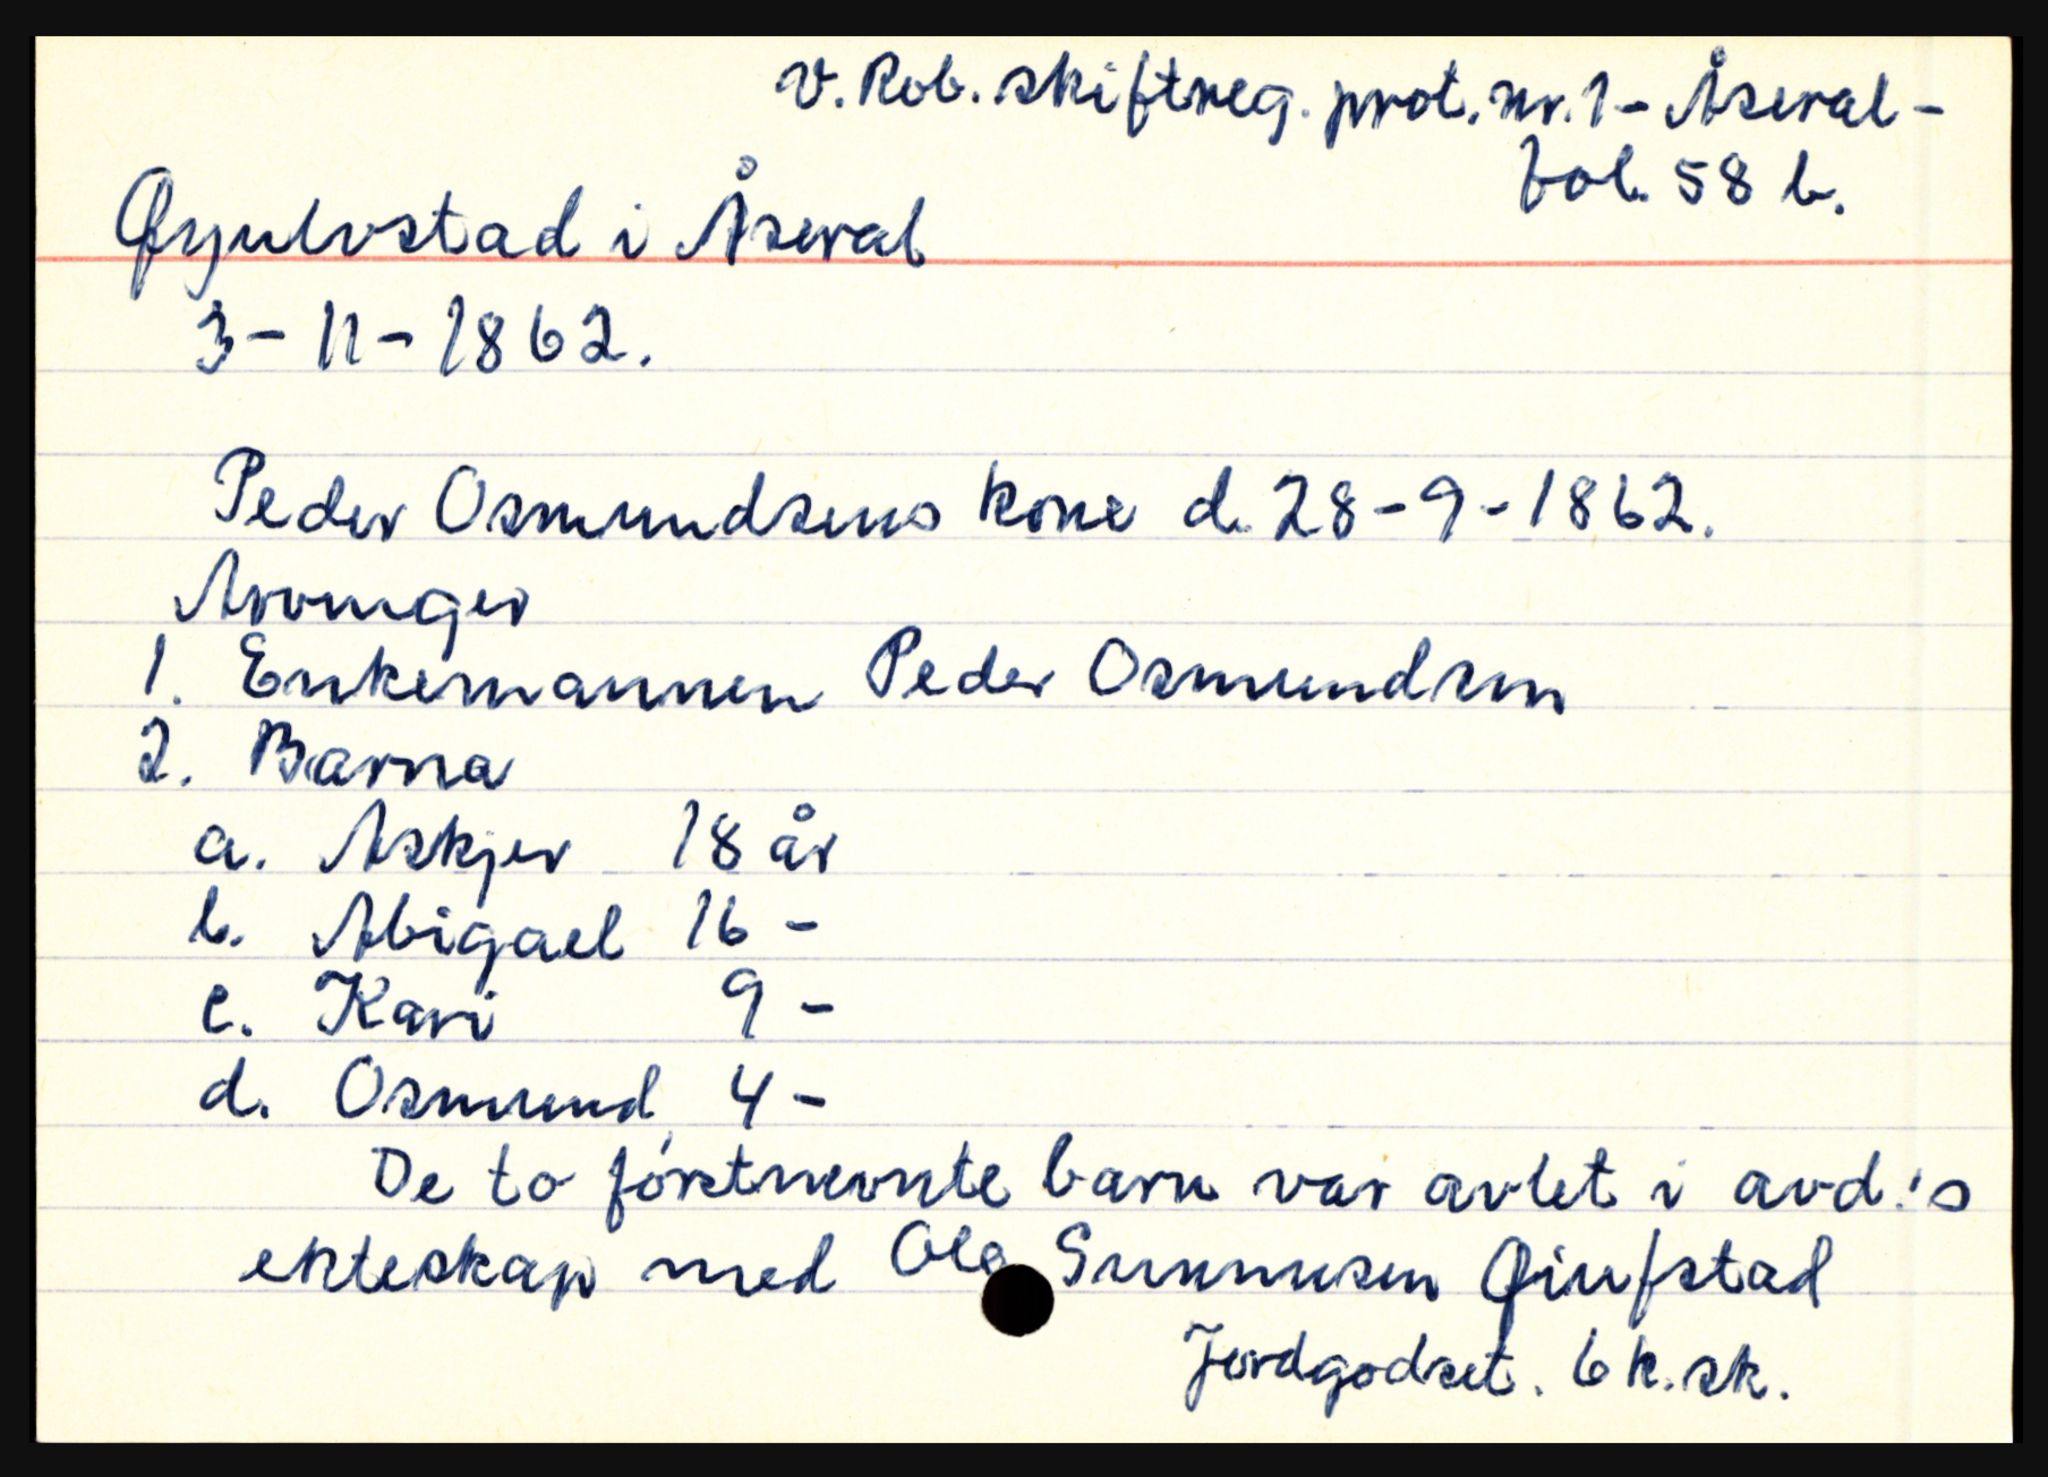 V. Rob. skiftreg. prot. nr. 1 - Åseral -
fol. 58 b.
Øyulvstad i Åseral
3 - 11 - 1862.
Peder Osmundsens kone d. 28 - 9 - 1862.
Arvinger
1. Enkemannen Peder Osmundsen
2. Barna
a. Askjer 18 år
b. Abigael 16 -
c. Kari 9 -
d. Osmund 4 -
De to førstnevnte barn var avlet i avd:s
ekteskap med Ola Gunnusen Øiufstad
Jordgodset. 6 k. sk.